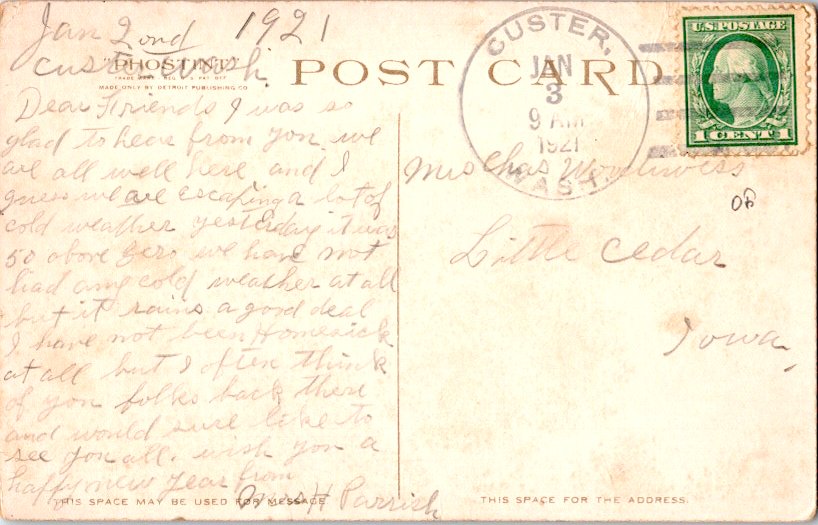 Jan 2ond 1921
Custer Wash.
"PHOSTINT"
TRADE MARK REG. U.S. PAT. OFF.
MADE ONLY BY DETROIT PUBLISHING CO.
POST CARD
CUSTER,
JAN
3
9 AM
1921
WASH.
U.S. POSTAGE
1 CENT 1
Dear Friends I was so
glad to hear from you we
are all well here and I
guess we are escaping a lot of
cold weather yesterday it was
50 above zero we have not
had any cold weather at all
but it rains a good deal
I have not been Homesick
at all but I often think
of you folks back there
and would sure like to
see you all. wish you a
happy new year from
Mrs H Parrish
Mrs Chas
Little Cedar
Iowa,
THIS SPACE MAY BE USED FOR MESSAGE
THIS SPACE FOR THE ADDRESS.